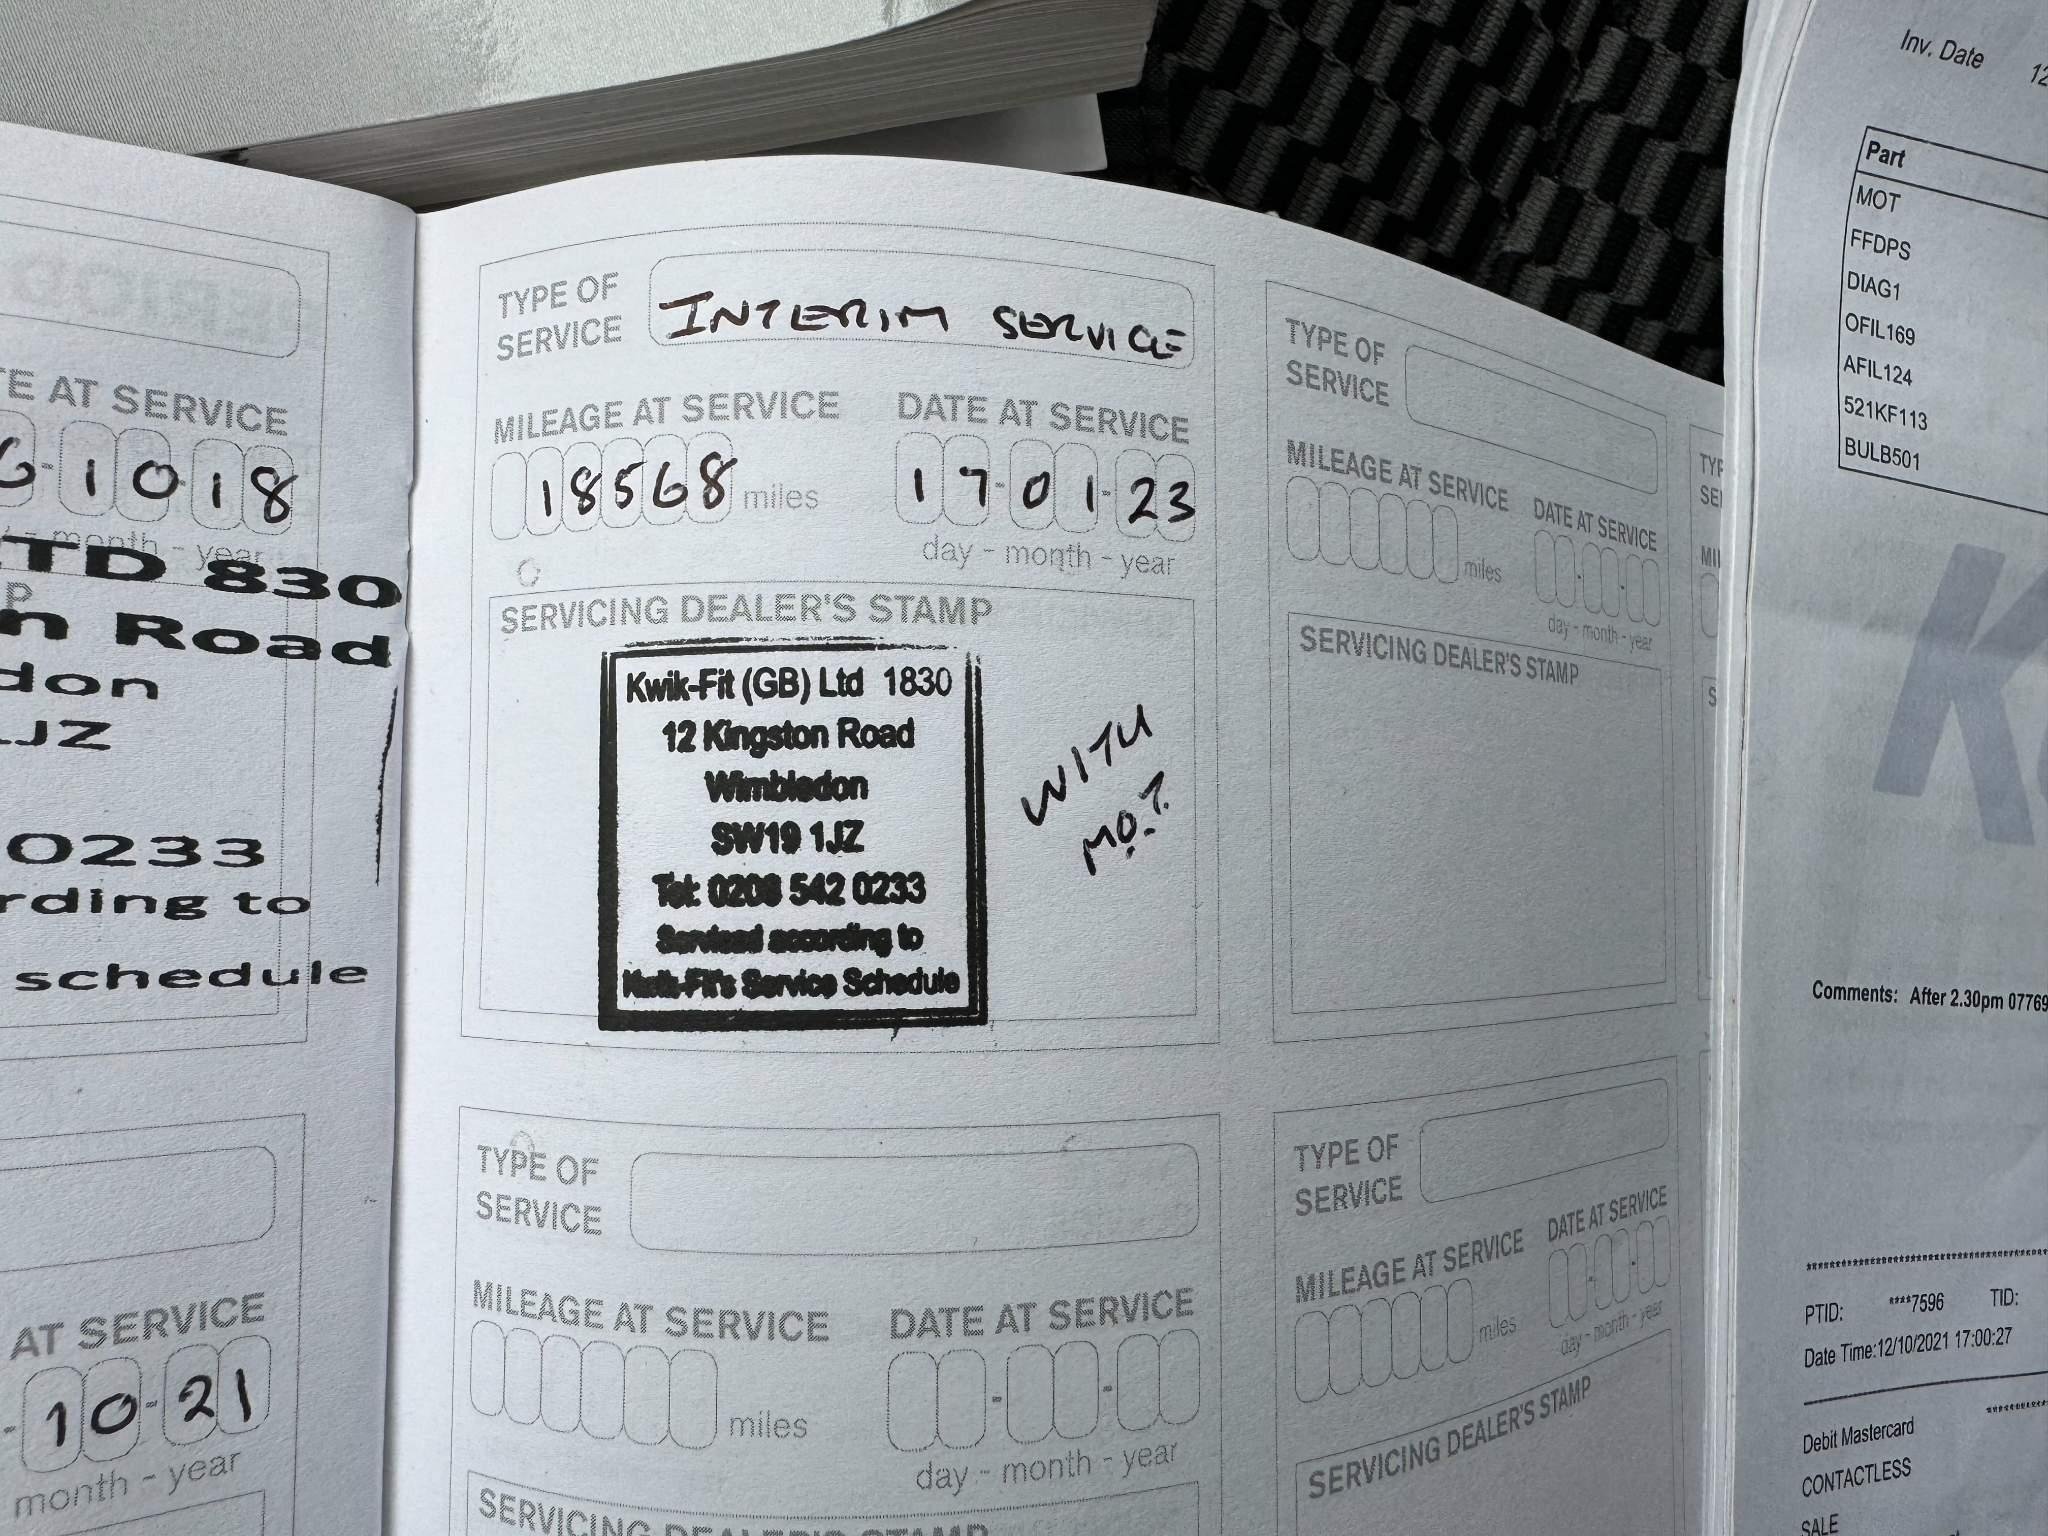 TE AT SERVICE
6-10-18
- month - year
LTD 830
P
n Road
don
1JZ
0233
rding to
schedule
AT SERVICE
-10-21
month - year
TYPE OF
SERVICE
INTERIM SERVICE
MILEAGE AT SERVICE
18568 miles
DATE AT SERVICE
17-01-23
day - month - year
SERVICING DEALER'S STAMP
Kwik-Fit (GB) Ltd 1830
12 Kingston Road
Wimbledon
SW19 1JZ
Tel: 0208 542 0233
Serviced according to
Kwik-Fit's Service Schedule
WITH
M.O.T.
TYPE OF
SERVICE
MILEAGE AT SERVICE
miles
DATE AT SERVICE
day - month - year
SERVICING DEALER'S STAMP
TYPE OF
SERVICE
MILEAGE AT SERVICE
miles
DATE AT SERVICE
day - month - year
SERVICING DEALER'S STAMP
TYPE OF
SERVICE
MILEAGE AT SERVICE
miles
DATE AT SERVICE
day - month - year
SERVICING DEALER'S STAMP
TYP
SE
MI
S
Inv. Date 12
Part
MOT
FFDPS
DIAG1
OFIL169
AFIL124
521KF113
BULB501
K
Comments: After 2.30pm 07769
PTID: ****7596 TID:
Date Time:12/10/2021 17:00:27
Debit Mastercard
CONTACTLESS
SALE